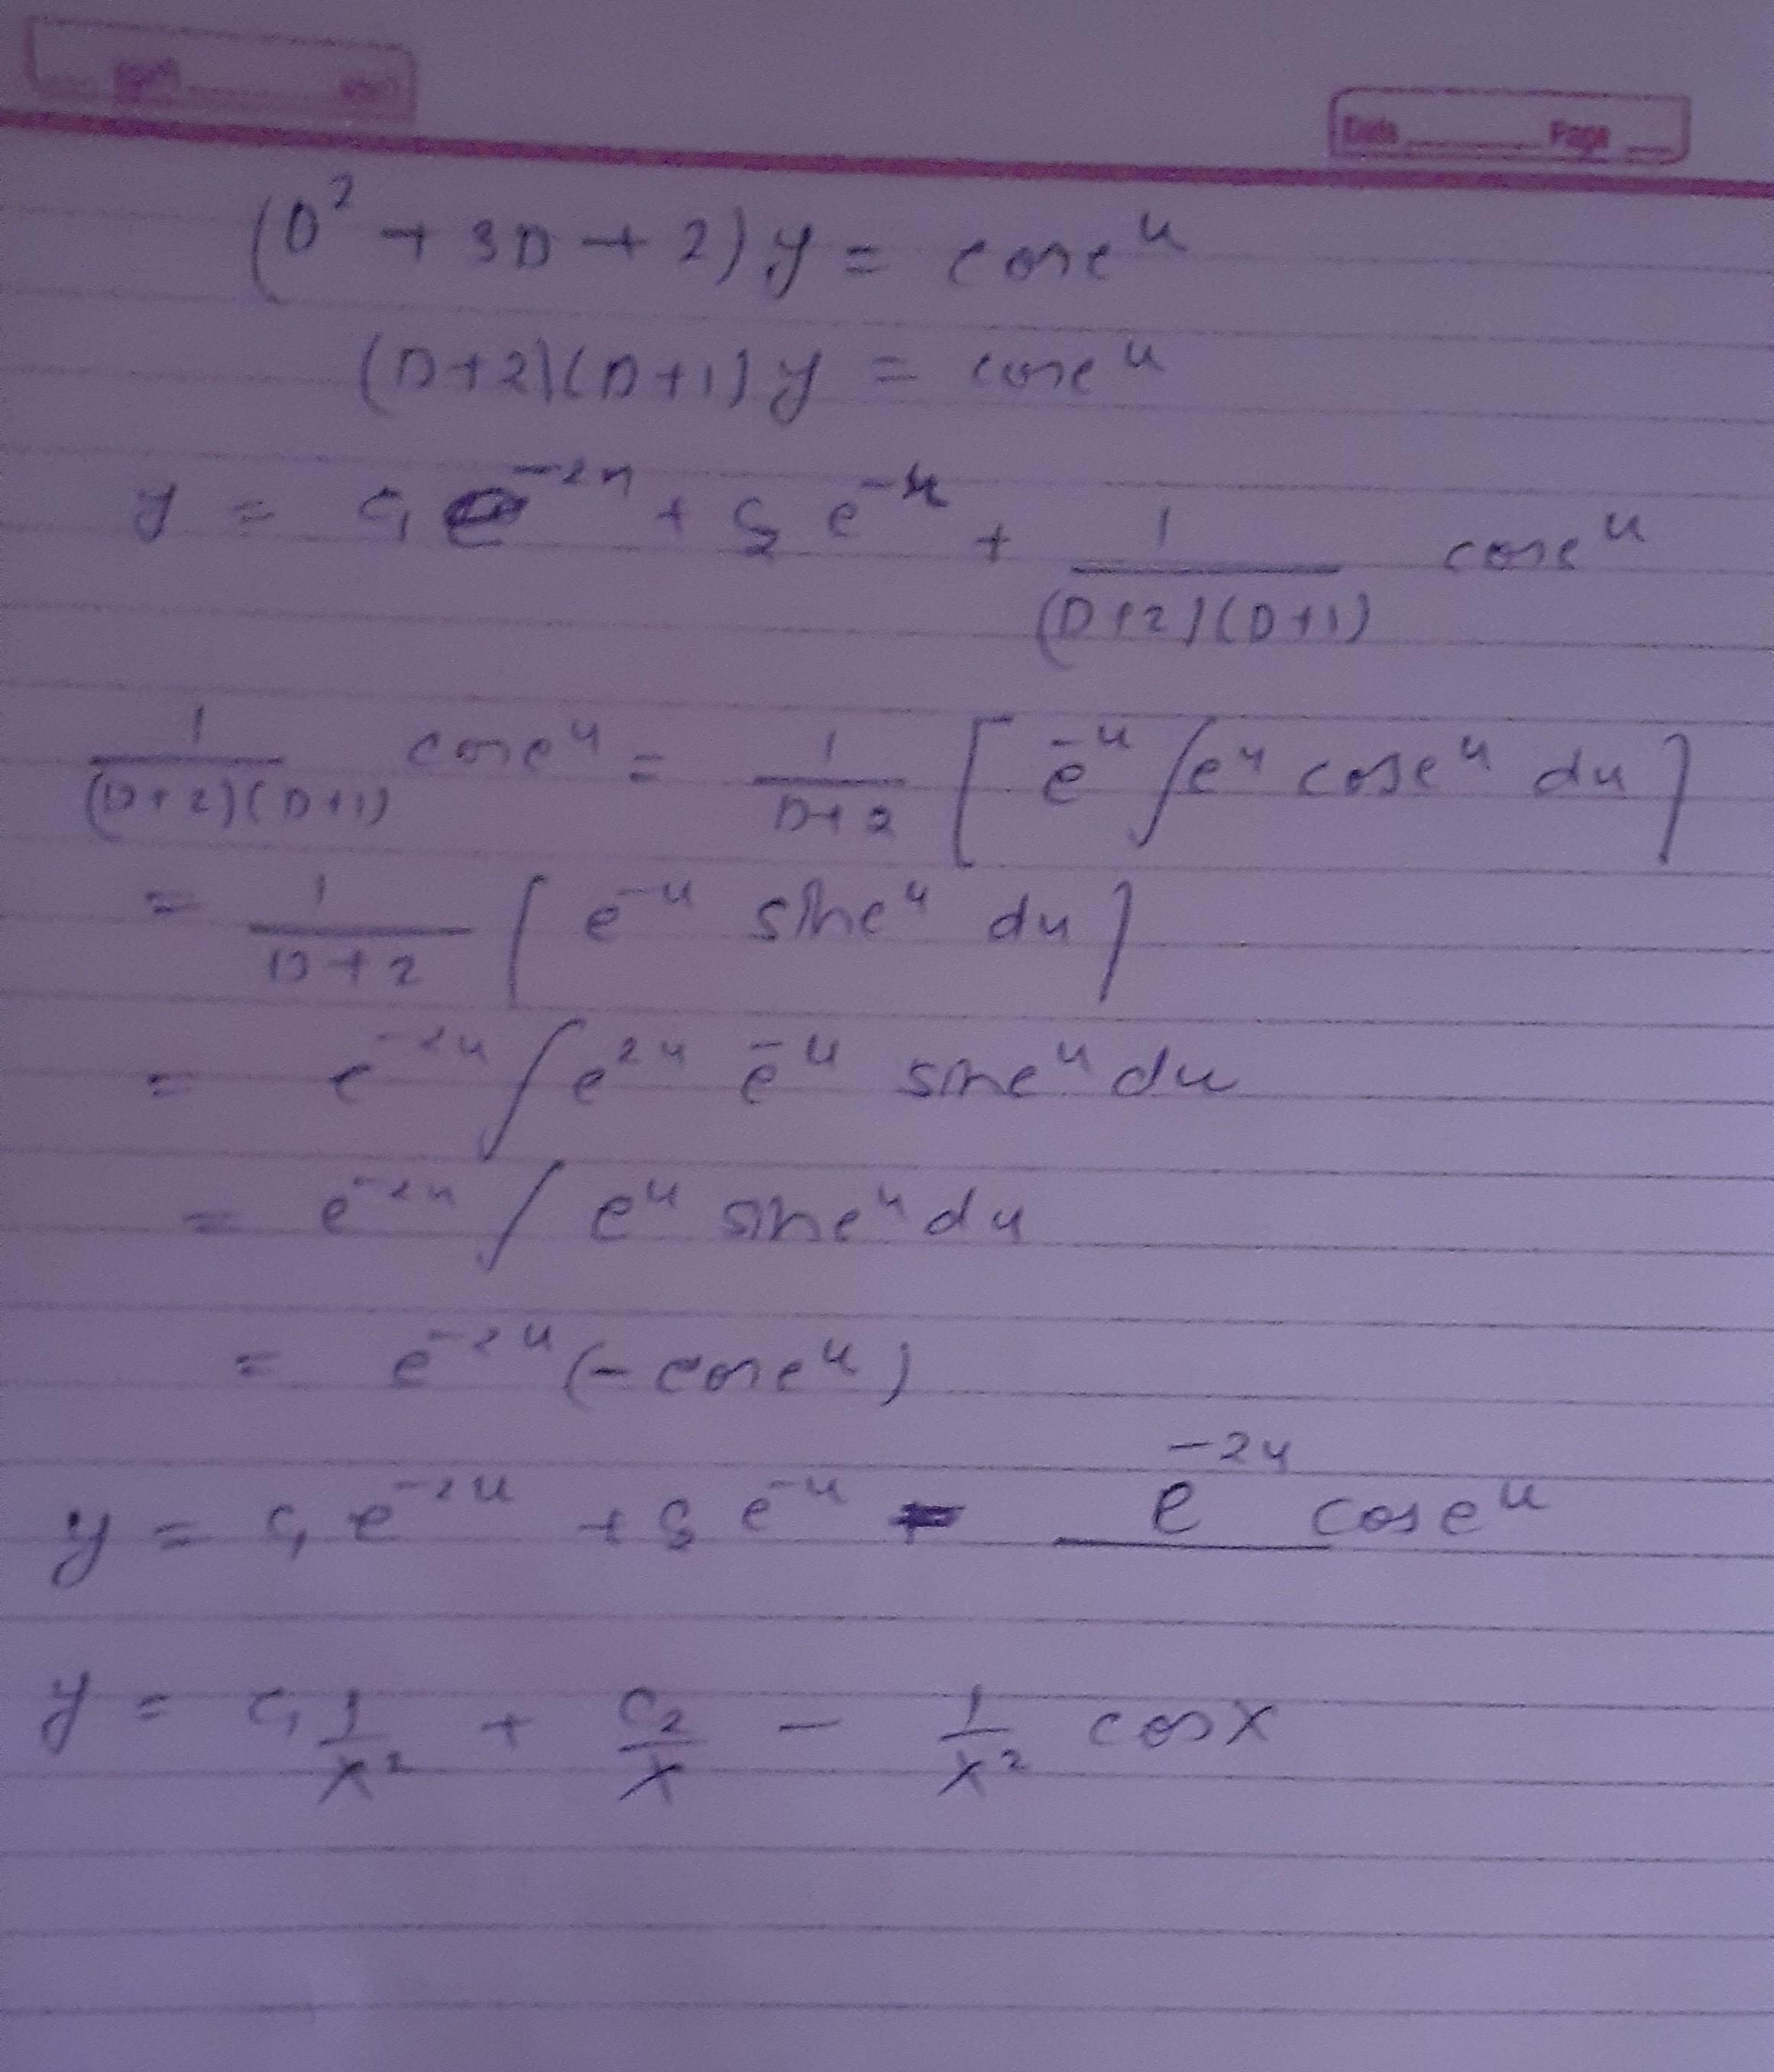 Date Page
(D² + 3D + 2) y = cos e^u
(D+2)(D+1) y = cos e^u
y = c₁ e^-2u + c₂ e^-u + 1/((D+2)(D+1)) cos e^u
1/((D+2)(D+1)) cos e^u = 1/(D+2) [ e^-u ∫ e^u cos e^u du ]
= 1/(D+2) [ e^-u sin e^u du ]
= e^-2u ∫ e^2u e^-u sin e^u du
= e^-2u ∫ e^u sin e^u du
= e^-2u (- cos e^u)
y = c₁ e^-2u + c₂ e^-u - e^-2u cos e^u
y = c₁ 1/x² + c₂/x - 1/x² cos x